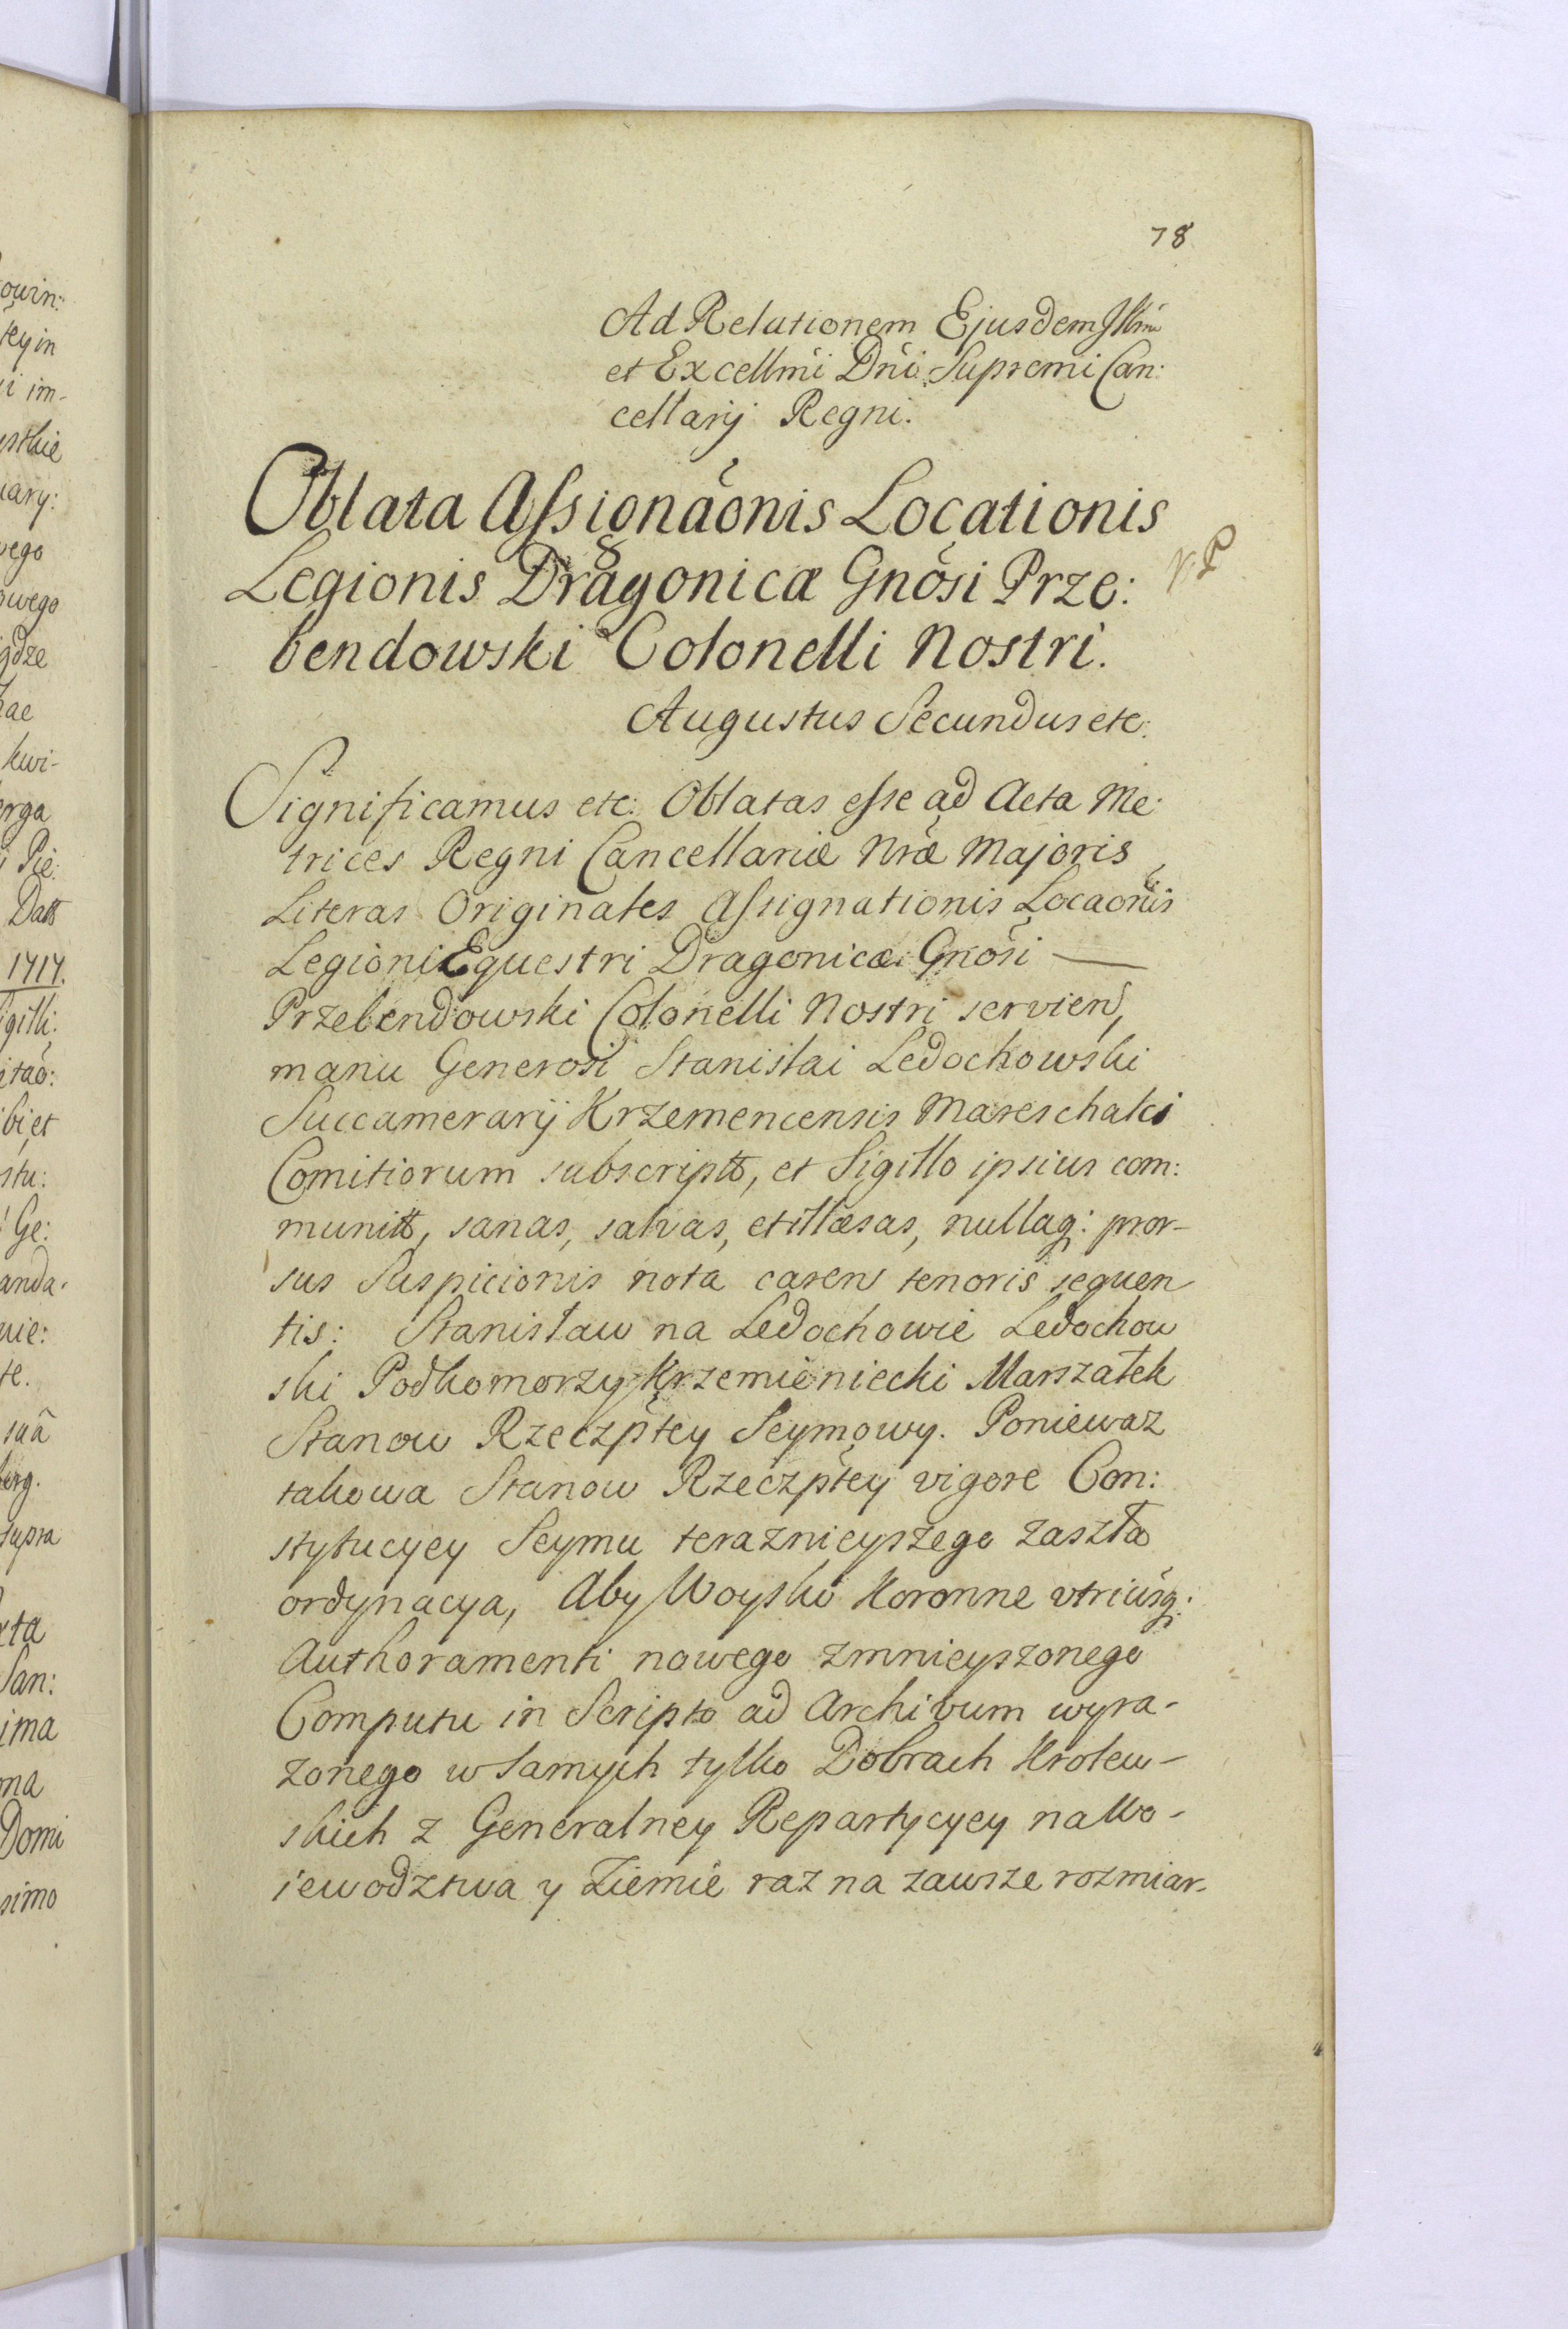 78
Ad Relationem Ejusdem Illmi
et Excellmi Dni Supremi Can:
cellarij Regni.
Oblata Assignaönis Locationis
Legionis Dragonicæ Gnosi Prze:
bendowski Colonelli Nostri.
Augustus Secundus etc:
Significamus etc: Oblatas esse ad Acta Me:
trices Regni Cancellariæ Nræ Majoris
Literas Originales Assignationis Locaonis
Legioni Equestri Dragonicæ Gnosi —
Przebendowski Colonelli Nostri servien,
manu Generosi Stanislai Ledochowski
Succamerarij Krzemencensis Mareschalci
Comitiorum subscriptt, et Sigillo ipsius com:
munitt, sanas, salvas, et illæsas, nullaq: pror-
sus Suspicionis nota caren tenoris sequen
tis: Stanisław na Ledochowie Ledochow
ski Podkomorzy Krzemieniecki Marszałek
Stanow Rzeczptey Seymowy. Poniewaz
takowa Stanow Rzeczptey vigore Con:
stytucyey Seymu teraznieyszego zaszła
ordynacya, Aby Woysko Koronne utriusq:
Authoramenti nowego zmnieyszonego
Computu in Scripto ad Archivum wyra-
zonego w samych tylko Dobrach Krolew-
skich z Generalney Repartycyey na Wo-
iewodztwa y Ziemie raz na zawsze rozmiar-
owin:
tey in
i im-
ystkie
uary:
wego
owego
ydze
kwi-
Pie:
Datt
1717.
igilli:
itaö:
bi, et
stu:
Ge:
anda-
nie:
te.
suã
berg.
supra
xta
San:
ima
na
Domi
simo